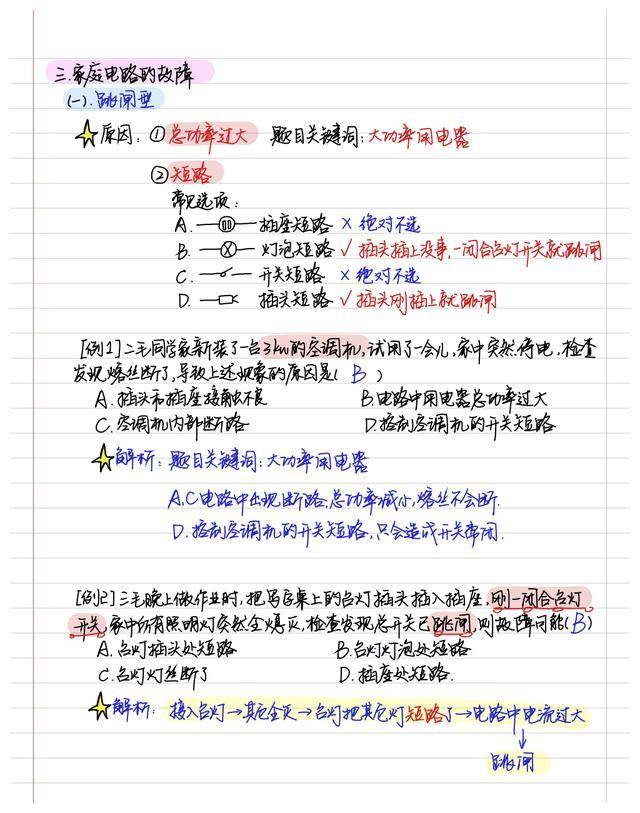 三.家庭电路的故障
(一).跳闸型
原因:①总功率过大 题目关键词:大功率用电器
②短路
常见选项:
A. 插座短路 ×绝对不选
B. 灯泡短路 √插头插上没事,一闭合台灯开关就跳闸
C. 开关短路 ×绝对不选
D. 插头短路 √插头刚插上就跳闸
[例1]二毛同学家新装了一台3kw的空调机,试用了一会儿,家中突然停电,检查
发现熔丝断了,导致上述现象的原因是( B )
A.插头和插座接触不良 B.电路中用电器总功率过大
C.空调机内部断路 D.控制空调机的开关短路
解析:题目关键词:大功率用电器
A.C电路中出现断路,总功率减小,熔丝不会断.
D.控制空调机的开关短路,只会造成开关常闭.
[例2]三毛晚上做作业时,把写字桌上的台灯插头插入插座,刚一闭合台灯
开关,家中所有照明灯突然全熄灭,检查发现总开关已跳闸,则故障可能(B)
A.台灯插头处短路 B.台灯灯泡处短路
C.台灯灯丝断了 D.插座处短路.
解析:接入台灯→其它全灭→台灯把其它灯短路了→电路中电流过大
↓
跳闸